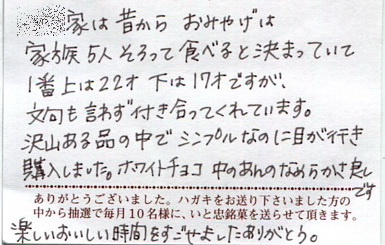 家は昔から おみやげは
家族5人そろって食べると決まっていて
1番上は22才 下は17才ですが、
文句も言わず付き合ってくれています。
沢山ある品の中でシンプルなのに目が行き
購入しました。ホワイトチョコ 中のあんのなめらかさ良し
です
ありがとうございました。ハガキをお送り下さいました方の
中から抽選で毎月10名様に、いと忠銘菓を送らせて頂きます。
楽しいおいしい時間をすごせましたありがとう。